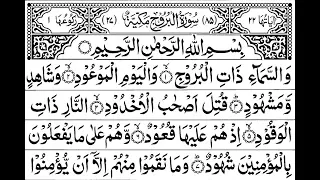 اٰیَاتُهَا ٢٢ (٨٥) سُوْرَةُ الْبُرُوْجِ مَكِّیَّةٌ (٢٧) رُكُوْعُهَا ١
بِسْمِ اللّٰهِ الرَّحْمٰنِ الرَّحِیْمِ
وَالسَّمَآءِ ذَاتِ الْبُرُوْجِ ۝١ وَالْیَوْمِ الْمَوْعُوْدِ ۝٢ وَشَاهِدٍ
وَّمَشْهُوْدٍ ۝٣ قُتِلَ اَصْحٰبُ الْاُخْدُوْدِ ۝٤ النَّارِ ذَاتِ
الْوَقُوْدِ ۝٥ اِذْ هُمْ عَلَیْهَا قُعُوْدٌ ۝٦ وَّهُمْ عَلٰی مَا یَفْعَلُوْنَ
بِالْمُؤْمِنِیْنَ شُهُوْدٌ ۝٧ وَمَا نَقَمُوْا مِنْهُمْ اِلَّاۤ اَنْ یُّؤْمِنُوْا